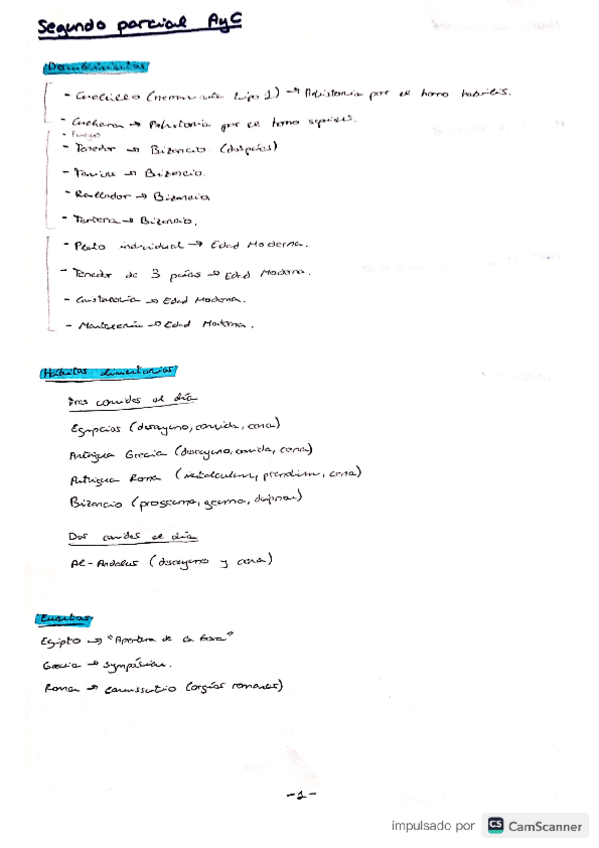 Segundo parcial AyC
- Cuchillo (herramienta tipo 1) → Prehistoria por el homo habilis.
- Cuchara → Prehistoria por el homo sapiens.
- Fuego
- Tenedor → Bizancio (dospúas)
- → Bizancio.
- Rallador → Bizancio
- Tartera → Bizancio.
- Plato individual → Edad Moderna.
- Tenedor de 3 púas → Edad Moderna.
- Cristalería → Edad Moderna.
- Mantelería → Edad Moderna.
Hábitos alimentarios
Tres comidas al día
Egipcios (desayuno, comida, cena)
Antigua Grecia (desayuno, comida, cena)
Antigua Roma (ientaculum, prandium, cena)
Bizancio (progeuma, geuma, deipnon)
Dos comidas al día
Al-Andalus (desayuno y cena)
Eventos
Egipto → "Apertura de la boca"
Grecia → Sympósion.
Roma → (orgías romanas)
-1-
impulsado por CS CamScanner